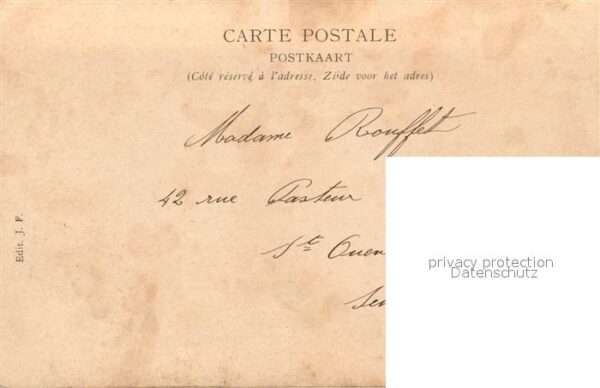 CARTE POSTALE
POSTKAART
(Côté réservé à l'adresse, Zijde voor het adres)
Madame Rouffet
42 rue Pasteur
St Ouen
Edit. J. F.
privacy protection
Datenschutz